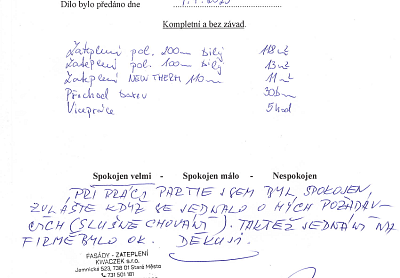 Dílo bylo předáno dne
Kompletní a bez závad.
Zateplení pol. 200m bílý 118 m²
Zateplení pol. 100m bílý 13 m²
Zateplení NEW THERM 110m 11 m²
Přechod barev 30 bm
Vícepráce 5 hod
Spokojen velmi - Spokojen málo - Nespokojen
PŘI PRÁCI PARTIE JSEM BYL SPOKOJEN,
ZVLÁŠTĚ KDYŽ SE JEDNALO O MÝCH POŽADAV-
CÍCH (SLUŠNÉ CHOVÁNÍ). TAKTÉŽ JEDNÁNÍ NA
FIRMĚ BYLO OK. DĚKUJI.
FASÁDY - ZATEPLENÍ
KWACZEK s.r.o.
Jamnická 523, 738 01 Staré Město
731 501 181